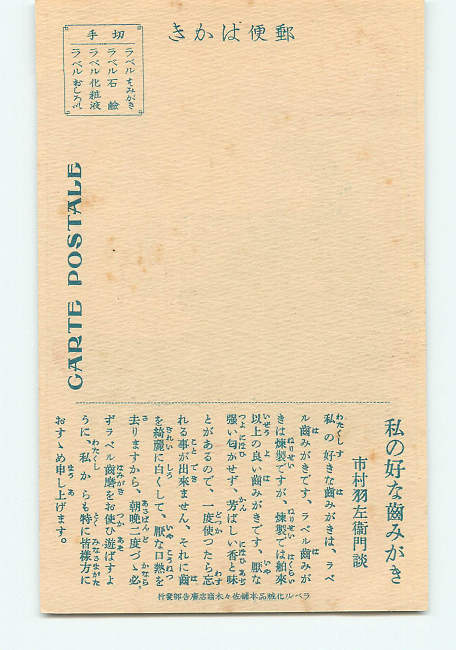 郵便はかき
切手
ラベルはみがき
ラベル石鹼
ラベル化粧液
ラベルおしろい
CARTE POSTALE
私の好な齒みがき
市村羽左衞門談
私の好きな齒みがきは、ラベ
ル齒みがきです。ラベル齒みが
きは煉製ですが、煉製では舶來
以上の良い齒みがきです。厭な
强い匂かせず、芳ばしい香と味
とがあるので、一度使つたら忘
れる事が出來ません、それに齒
を綺麗に白くして、厭な口熱を
去りますから、朝晩二度づゝ必
ずラベル齒磨をお使ひ遊ばすよ
うに、私からも特に皆樣方に
おすゝめ申し上げます。
ラベル化粧品本舖佐々木商店廣告部發行